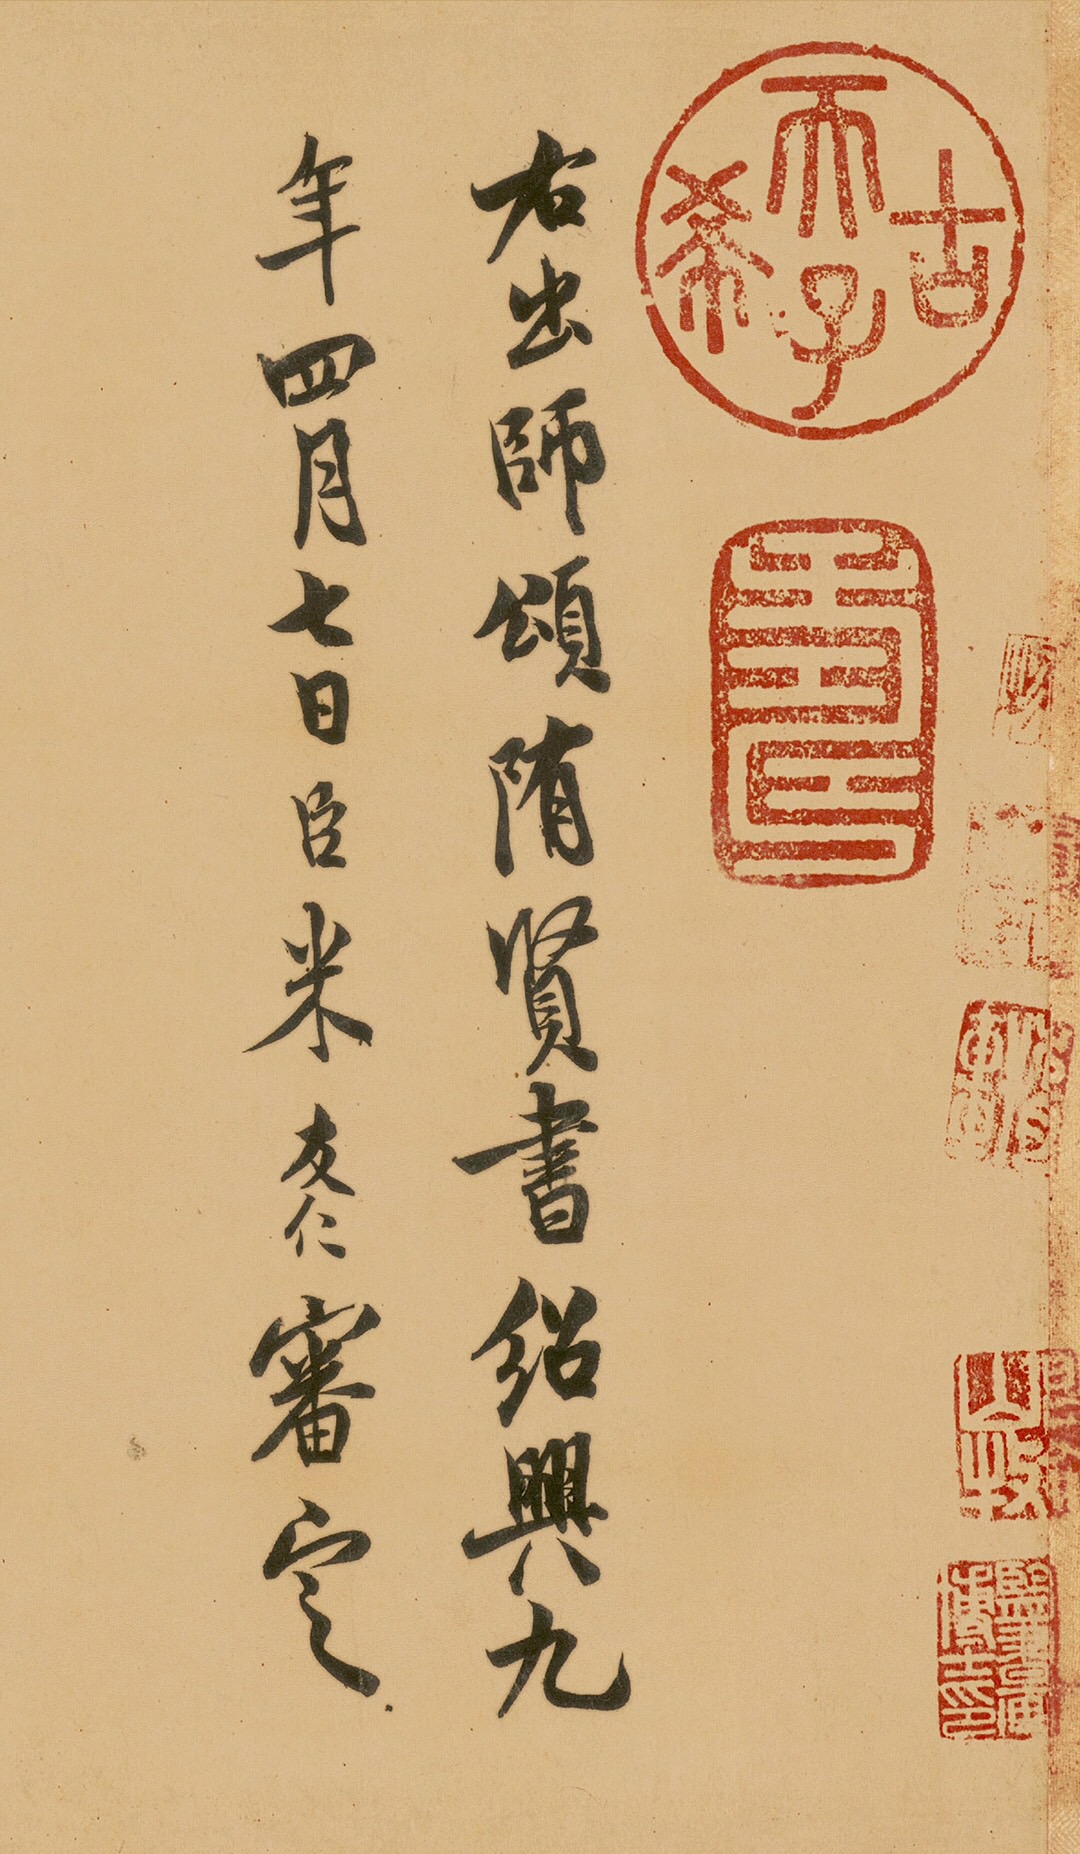 古希
天子
壽
右出師頌隋賢書紹興九
年四月七日臣米友仁審定